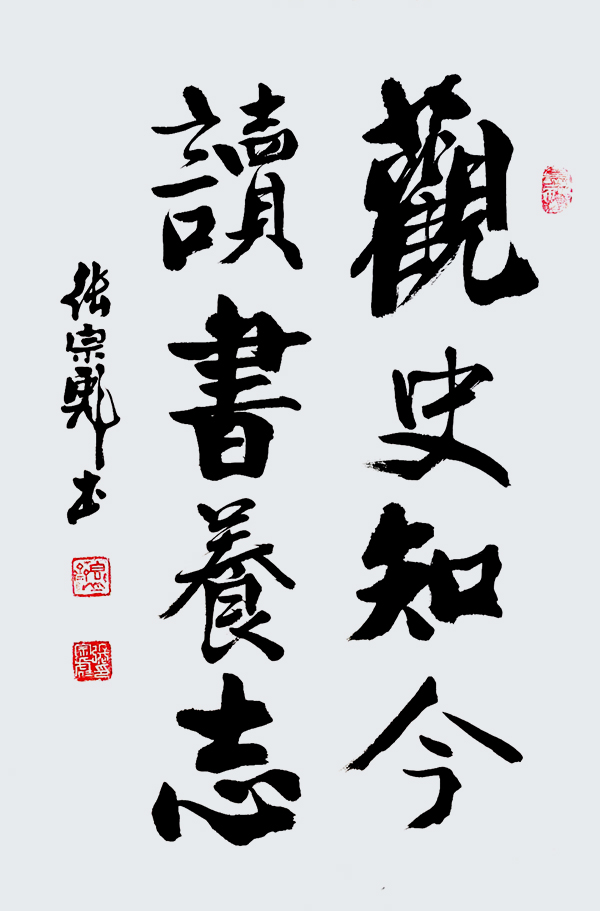 觀史知今
讀書養志
张宗彪书